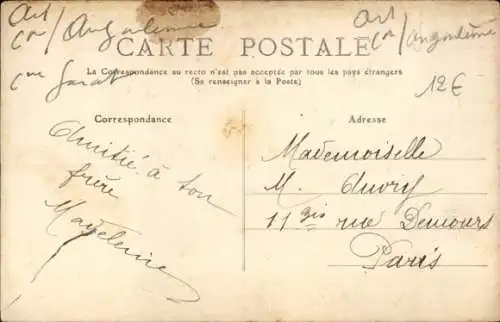 Art
Cn / Angoulême
Art
Cn / Angoulême
CARTE POSTALE
La Correspondance au recto n'est pas acceptée par tous les pays étrangers
(Se renseigner à la Poste)
12€
Correspondance
Adresse
Amitié à ton
frère
Madeleine
Mademoiselle
M. Auvry
11 bis rue Demours
Paris